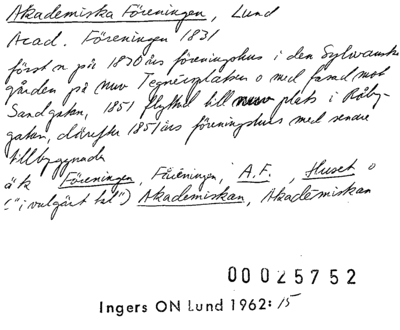 Akademiska Föreningen, Lund
Acad. Föreningen 1831
först n på 1830 års föreningshus i den Sylwanska
gården på nuv Tegnérplatsen o med fasad mot
Sandgatan, 1851 flyttad till nuv plats i Råby-
gatan, därefter 1851 års föreningshus med senare
tillbyggnader
äk Föreningen, Föreningen, A.F., Huset o
("i vulgärt tal") Akademiskan, Akademiskan
00025752
Ingers ON Lund 1962:15